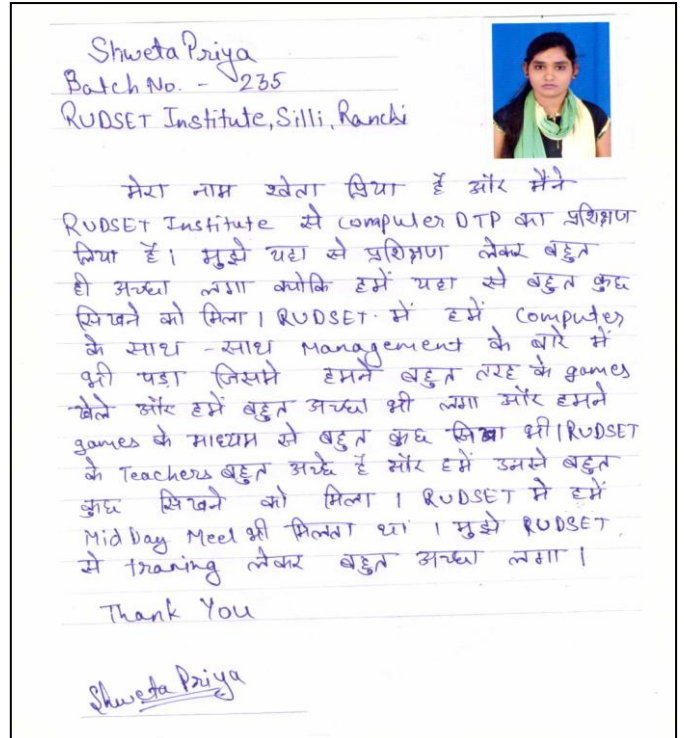 Shweta Priya
Batch No. - 235
RUDSET Institute, Silli, Ranchi
मेरा नाम श्वेता प्रिया हैं और मैंने
RUDSET Institute से computer DTP का प्रशिक्षण
लिया हैं। मुझे यहा से प्रशिक्षण लेकर बहुत
ही अच्छा लगा क्योकि हमें यहा से बहुत कुछ
सिखने को मिला। RUDSET में हमें Computer
के साथ - साथ Management के बारे में
भी पडा जिसमे हमनें बहुत तरह के games
खेले और हमें बहुत अच्छा भी लगा और हमने
games के माध्यम से बहुत कुछ सिखा भी। RUDSET
के Teachers बहुत अच्छे हैं और हमें उनसे बहुत
कुछ सिखने को मिला। RUDSET मे हमें
Mid Day Meel भी मिलता था। मुझे RUDSET
से traning लेकर बहुत अच्छा लगा।
Thank You
Shweta Priya